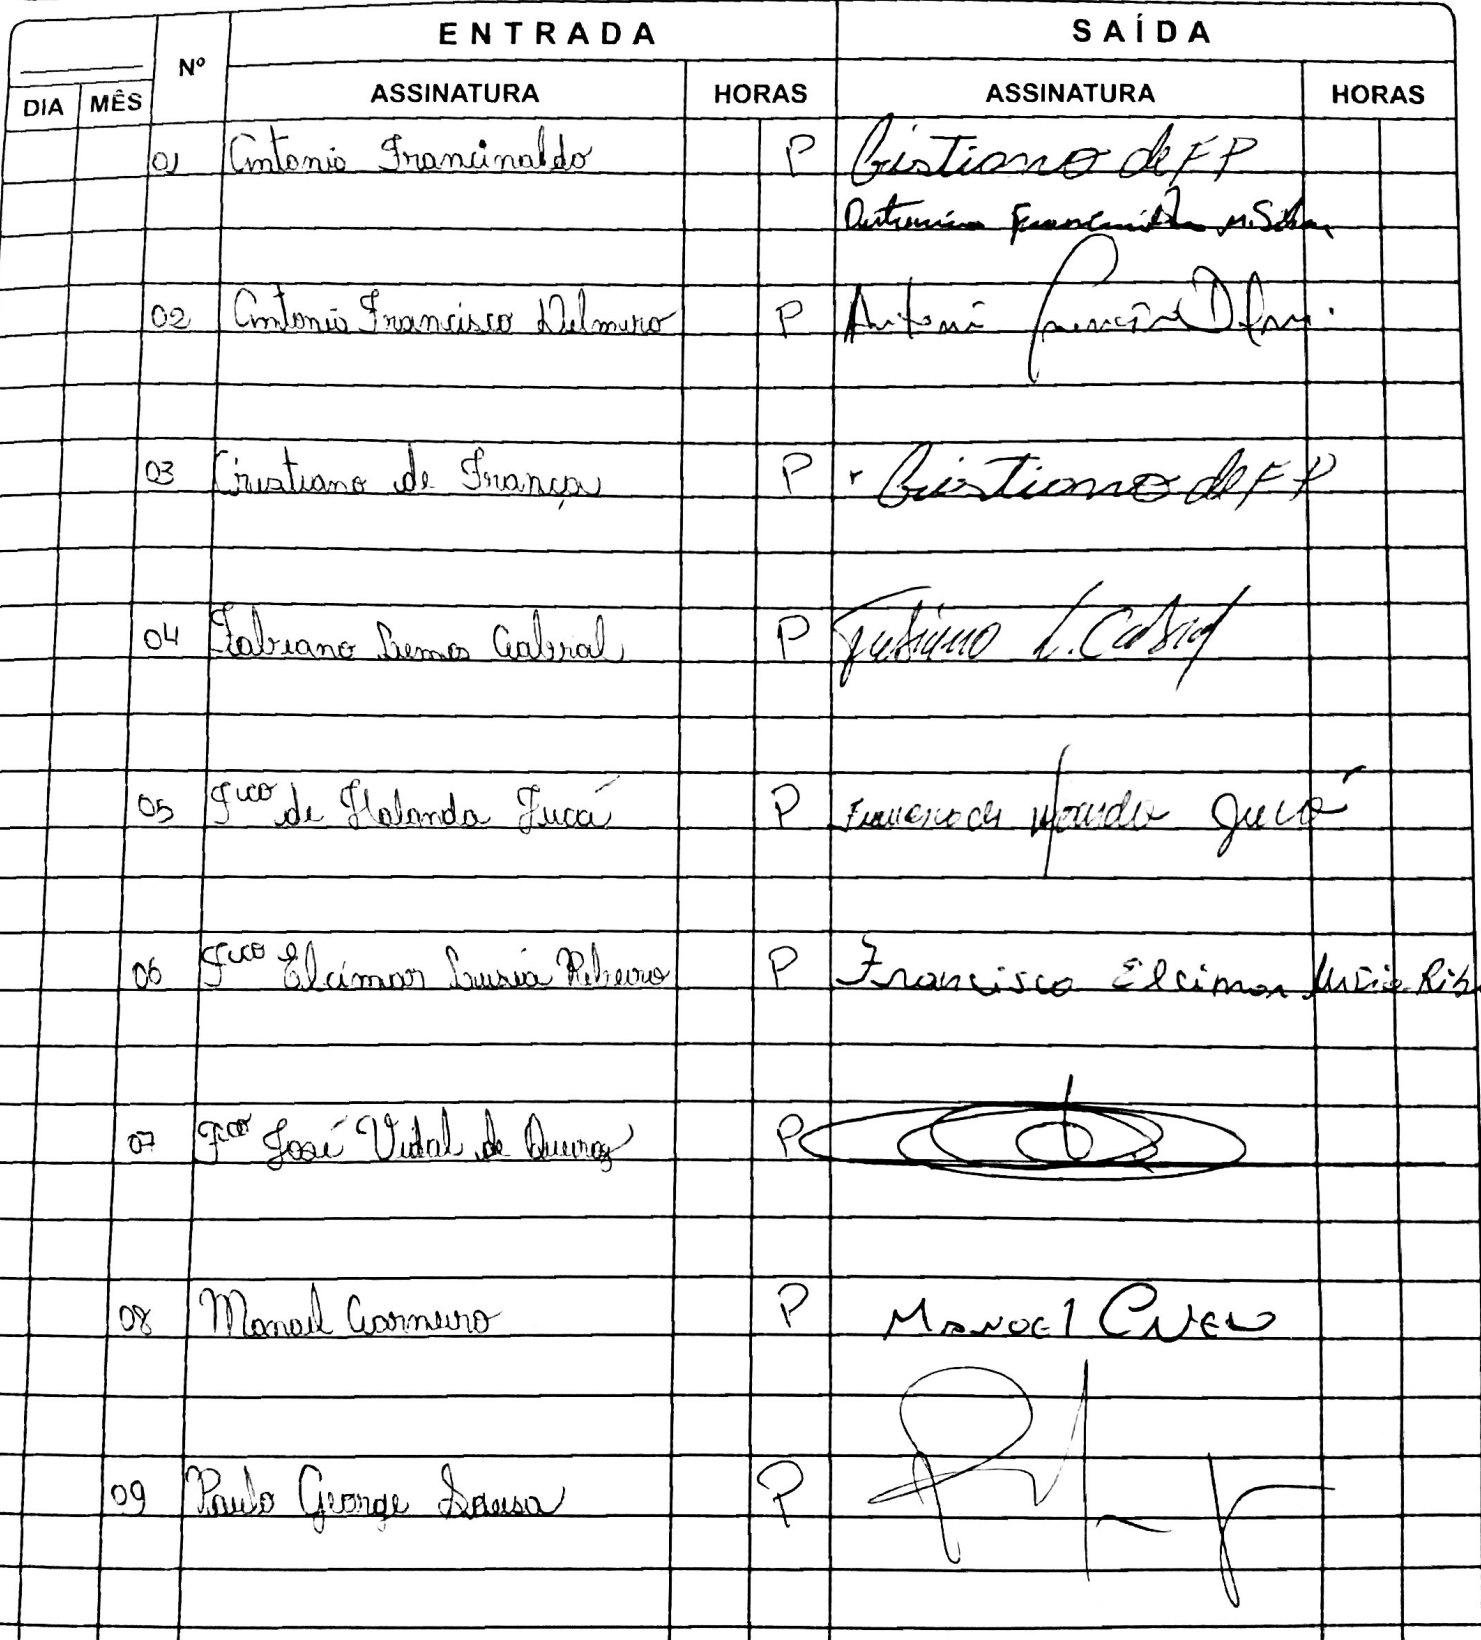 ENTRADA SAÍDA
Nº
DIA MÊS ASSINATURA HORAS ASSINATURA HORAS
01 Antonio Francinaldo P Cristiano de F P
Antonio M. Silva
02 Antonio Francisco Delmiro P Antoni
03 Cristiano de França P Cristiano de F P
04 Fabiano Lemos Cabral P Fabiano L. Cabral
05 Fco de Holanda Jucá P Francisco de Holanda Jucá
06 Fco Elcimar Lusia Ribeiro P Francisco Elcimar Rib
07 Fco José Vidal de Queiroz P
08 Manoel Carneiro P MANOEL
09 Paulo George Sousa P